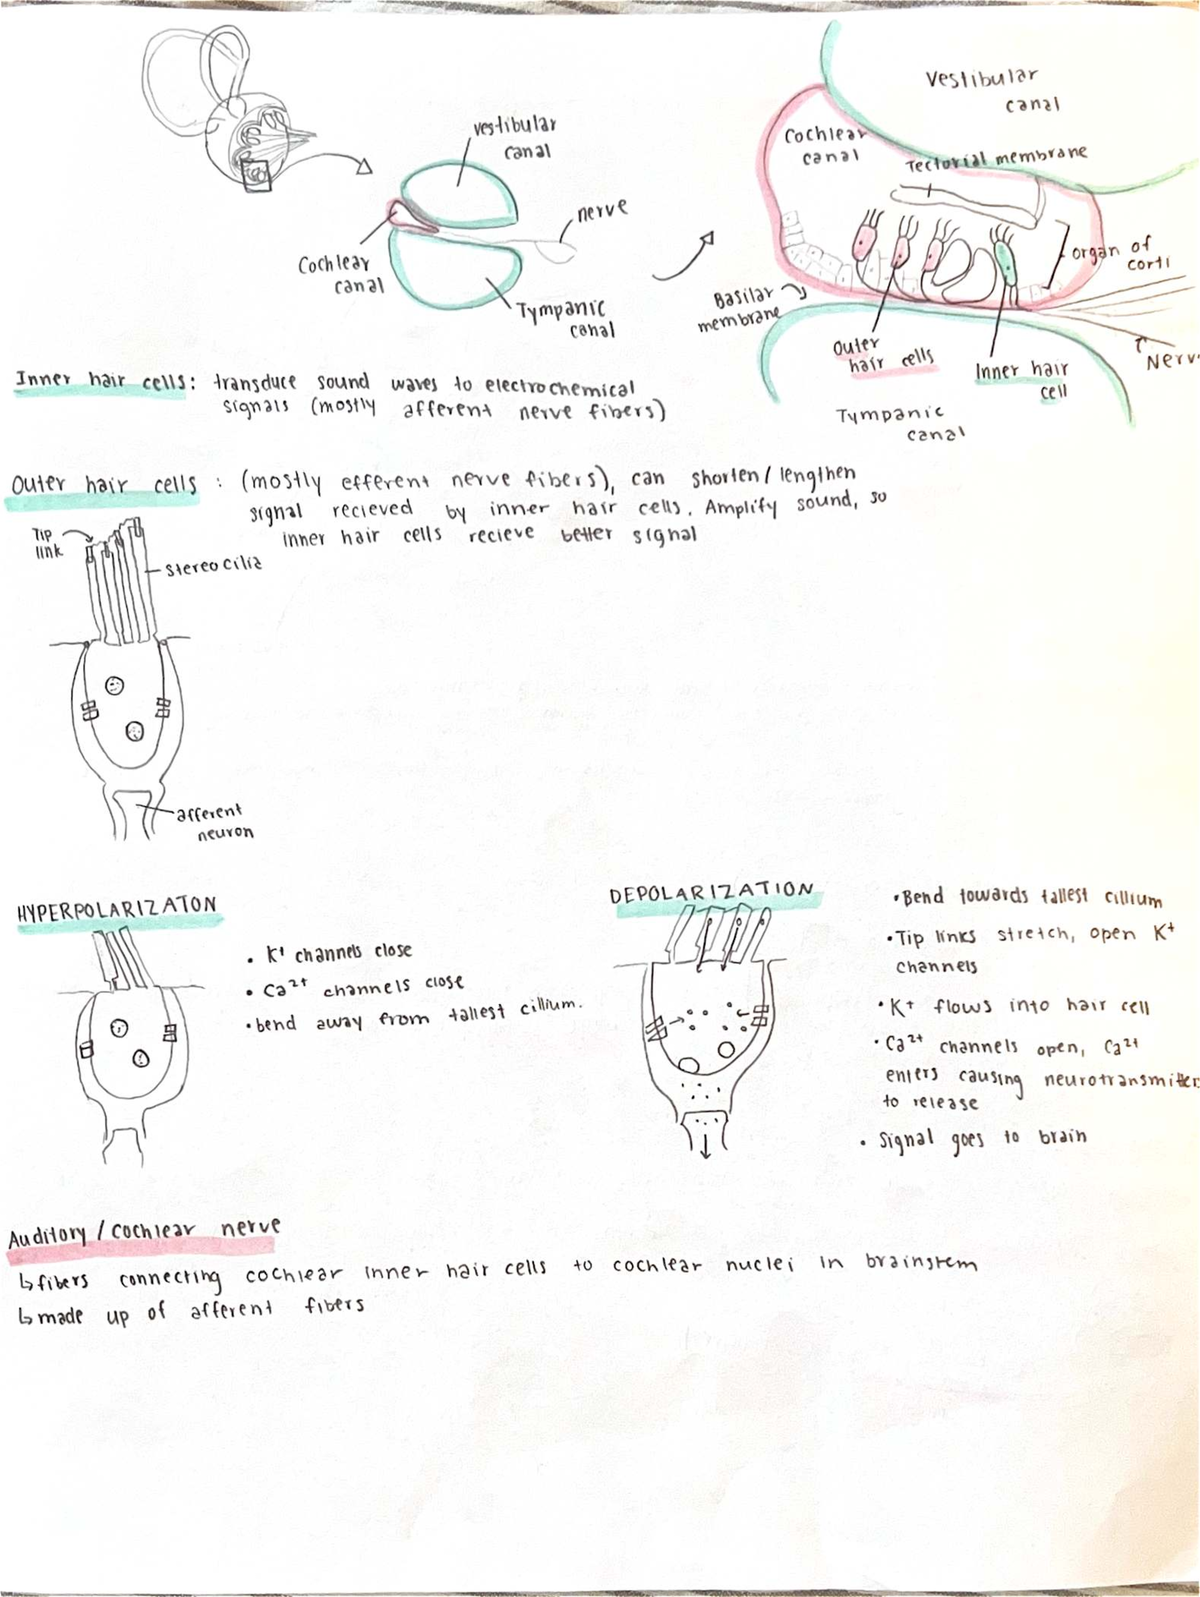 vestibular
canal
nerve
Cochlear
canal
Tympanic
canal
Vestibular
canal
Cochlear
canal
Tectorial membrane
organ of
corti
Basilar
membrane
Outer
hair cells
Inner hair
cell
Nerv
Tympanic
canal
Inner hair cells: transduce sound waves to electrochemical
signals (mostly afferent nerve fibers)
Outer hair cells : (mostly efferent nerve fibers), can shorten/lengthen
signal recieved by inner hair cells. Amplify sound, so
inner hair cells recieve better signal
Tip
link
stereocilia
afferent
neuron
HYPERPOLARIZATON
• K+ channels close
• Ca2+ channels close
• bend away from tallest cillium.
DEPOLARIZATION
• Bend towards tallest cillium
• Tip links stretch, open K+
channels
• K+ flows into hair cell
• Ca2+ channels open, Ca2+
enters causing neurotransmitters
to release
• Signal goes to brain
Auditory/cochlear nerve
↳ fibers connecting cochlear inner hair cells to cochlear nuclei in brainstem
↳ made up of afferent fibers